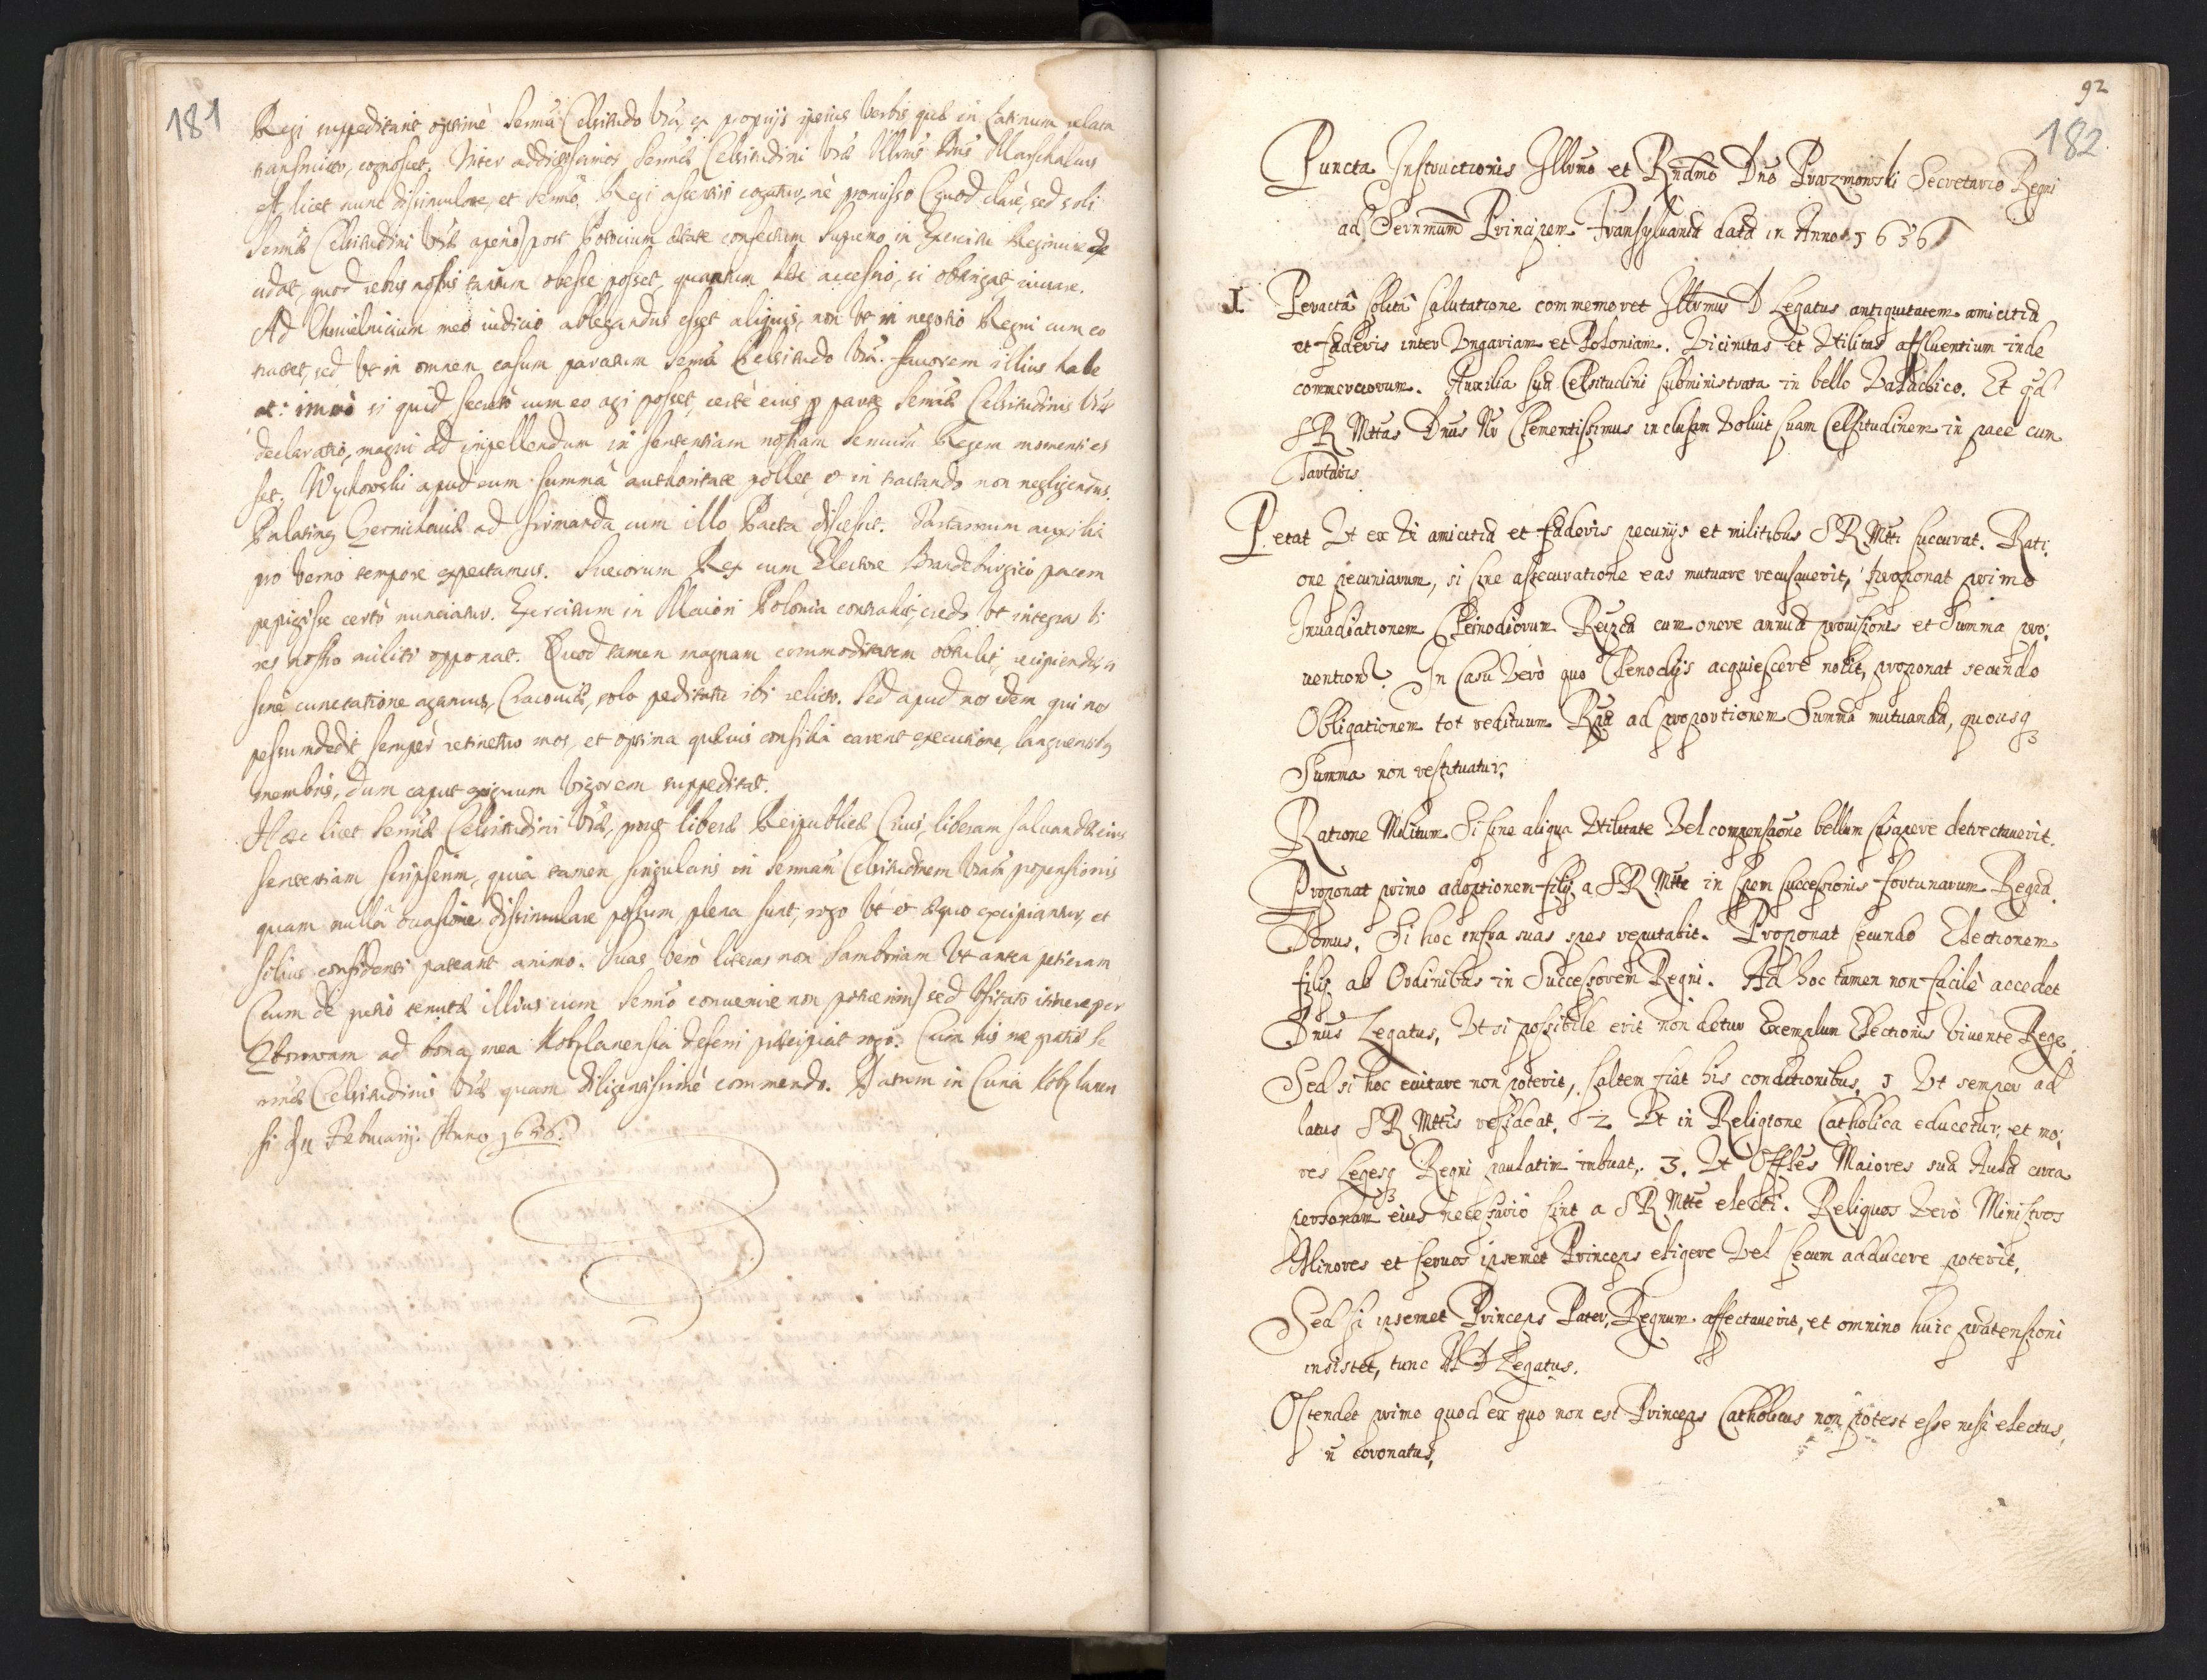 181
Regi suppeditarit optimè Sermã Celsitudo Vrã, ex propijs ipsius verbis quæ in Latinum
transmitto, cognoscet. Inter addictissimos Sermæ Celsitudini Vræ Illmus Dnus Marschalcus
et licet nunc dissimulare, et Sermo Regi asseruiri cogatur, nè promisso (quod clarè, sed soli
Sermæ Celsitudini Vræ aperio) post Potocium ætate confectum supremo in Exercitu Regimine
cadat, quod rebus nostris tantum obesse posset, quantum accessio, si obtingat iuuare.
Ad Chmielnicium meo iudicio ablegandus esset aliquis, non vt in negotio Regni cum eo
tractet, sed Vt in omnem casum paratum Serma Celsitudo Vrã fauorem illius habe
at: imò si quid secretò cum eo agi posset, certè eius p parte Sermæ Celsitudinis Vræ
declaratio, magni ad impellendum in sententiam nostram Sermum Regem momenti es
set. Wychowski apud eum summâ authoritate pollet, et in tractando non negligendus.
Palatinus Czernichouiæ ad firmanda cum illo Pacta discessit. Tartarorum auxilia
pro verno tempore expectamus. Suecorum Rex cum Electore Brandeburgico pacem
pepigisse certò nunciatur. Exercitum in Maiori Polonia contrahit, credo Vt integras vi
res nostro militi opponat. Quod tamen magnam commoditatem obtulit, recipiendæ, si
sine cunctatione agamus, Cracouiæ, solo peditatu ibi relicto. Sed apud nos idem qui nos
pessumdedit semper retinetur mos, et optima quæuis consilia carent executione, languentibus
membris, dum caput exiguum vigorem suppeditat.
Hæc licet Sermæ Celsitudini Vræ, prout liberæ Reipublicæ Ciuis, liberam saluandæ eius
sententiam scripserim, quia tamen singularis in Sermam Celsitudinem Vram propensionis
quam nullâ occasione dissimulare possum plena sunt, rogo vt et æquo excipiantur, et
solius confidenti pateant animo. Suas verò litteras non Samboriam Vt antea petieram
(cum de pretio tenutæ illius cum Sermo conuenire non potuerim) sed vsitato itinere per
Zborowam ad bona mea Kobylanensia deferri præcipiat rogo. Cum his me gratiæ Se
rmæ Celsitudinis Vræ quam diligentissimè commendo. Datum in Curia Kobylanen
si Februarij. Anno 1656.
92
182
Puncta Instructionis Illrmo et Rndmo Dno Prazmowski Secretario Regni
ad Sernmum Principem Transyluaniæ data in Anno 1656
1 Peractâ Solitâ Salutatione commemoret Illrmus D Legatus antiquitatem amicitiæ
et fæderis inter Vngariam et Poloniam. Vicinitas et Vtilitas affluentium inde
commerciorum. Auxilia Suæ Celsitudini Subministrata in bello Valachico. Et qd
SR Mttas Dnus Nr Clementissimus inclusam Voluit Suam Celsitudinem in pace cum
Tartaris.
Petat Vt ex Vi amicitiæ et fæderis pecunijs et militibus SR Mtti succurat. Rati:
one pecuniarum, si sine assecuratione eas mutuare recusauerit, proponat primo
Inuadiationem Cleinodiorum Regni cum onere annuæ prouisionis et Summa pro:
uentionũ. In Casu Verò quo Clenodijs acquiescere nolit, proponat secundo
Obligationem tot redituum ad proportionem Summæ mutuandæ, quousq
Summa non restituatur.
Ratione Militum Si sine aliqua Vtilitate Vel compensãone bellum suscipere detrectauerit.
Proponat primo adoptionem filij a SR Mtte in spem Successionis fortunarum Regiæ
Domus. Si hoc infra suas spes reputabit. Proponat Secundo Electionem
filij ab Ordinibus in Successorem Regni. Ad hoc tamen non facilè accedet
Dnus Legatus, Vt si possibile erit non detur Exemplum Electionis Viuente Rege.
Sed si hoc euitare non poterit, Saltem fiat his conditionibus. 1 Vt semper ad
latus SR Mttis resideat. 2 Vt in Religione Catholica educetur, et mo:
res Legesq Regni paulatim imbuat. 3. Vt Offles Maiores suæ Aulæ circa
personam eius necessario sint a SR Mtte electi. Reliquos Verò Ministros
Minores et Seruos ipsemet Princeps eligere Vel Secum adducere poterit.
Sed si ipsemet Princeps Pater, Regnum affectauerit, et omnino huic prætensioni
insistet, tunc Ill D Legatus.
Ostendet primo quod ex quo non est Princeps Catholicus non potest esse nisi electus,
ñ coronatus.